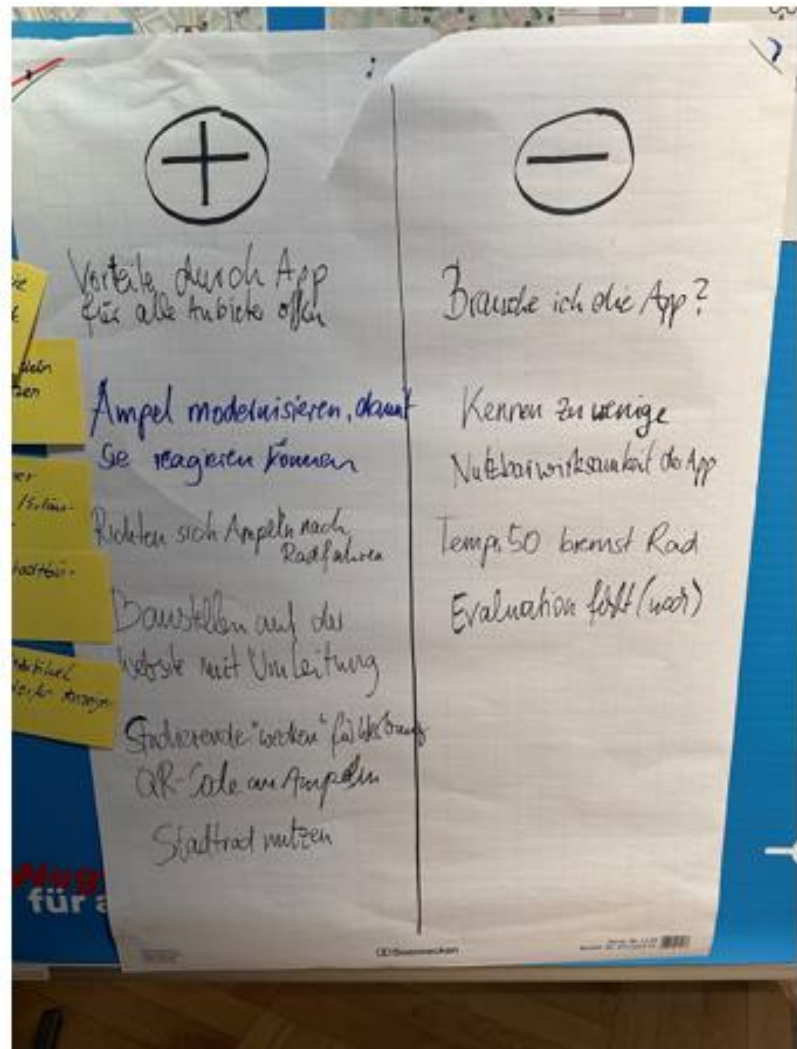 +
Vorteile durch App
für alle Anbieter offen
Ampel modernisieren, damit
Sie reagieren können
Richten sich Ampeln nach
Radfahren
Baustellen auf der
Website mit Umleitung
Studierende "wecken" für
QR-Code an Ampeln
Stadtrad nutzen
−
Brauche ich die App?
Kennen zu wenige
Nutzbarwirksamkeit der App
Tempo 50 bremst Rad
Evaluation fehlt (noch)
für
Soennecken